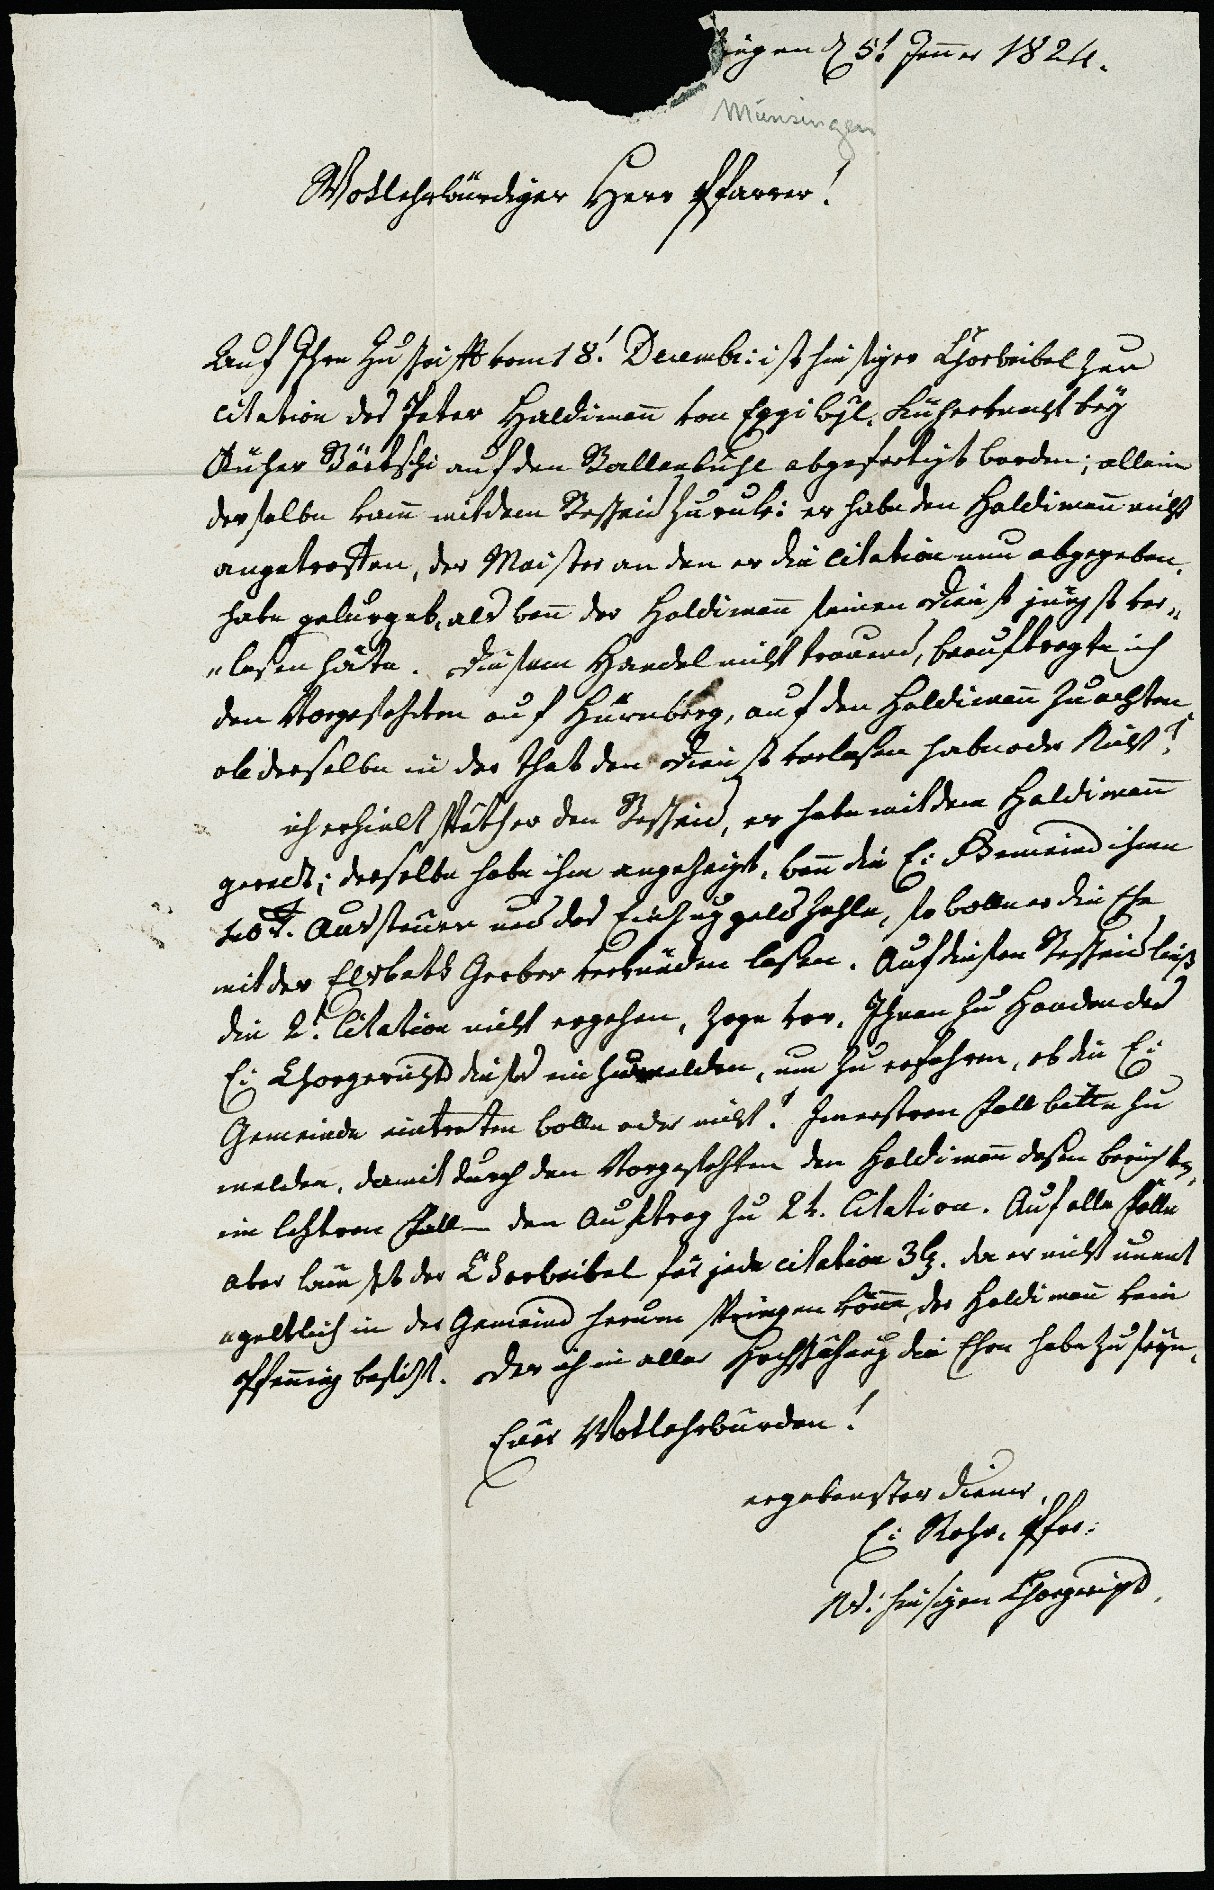 ingen d 5t Jenner 1824.
Münsingen
Wohlehrwürdiger Herr Pfarrer!
Auf Ihre Zuschrifft vom 18t Decembr: ist hiesiger Chorweibel zur
citation des Peter Haldimañ von Eggiwyl. Küherknecht bey
Küher Bärtschi auf den Ballenbühl abgefertigt worden; allein
derselbe kam mit dem Bescheid zuruk: er habe den Haldimañ nicht
angetroffen, der Meister an den er die citation nun abgegeben,
habe, als wenn der Haldimañ seinen Dienst jüngst ver„
„lassen hätte. Diesem Handel nicht trauend, beauftragte ich
den Vorgesetzten auf Hürnberg, auf den Haldimañ zu achten
ob derselbe in der That den Dienst verlassen habe oder Nicht?
ich erhielt späther den Bescheid, er habe mit dem Haldimañ
geredt; derselbe habe ihm angezeigt, wenn die E: Gemeind ihme
Aussteuer und das Einzuggeld zahle, so wolle er die Ehe
mit der Elsbeth Gerber verkünden lassen. Auf diesen Bescheid ließ
die 2t Citation nicht ergehen, zoge vor, Ihnen zu Handen des
E: Chorgerichts dieses einzumelden, um zu erfahren, ob die E:
Gemeinde eintretten wolle oder nicht? Im erstern Fall bitte zu
melden, damit durch den Vorgesetzten den Haldimañ dessen berichten,
im letstern Fall – den Auftrag zu 2t. Citation. Auf alle Fälle
aber der Chorweibel für jede citation 3 bz. da er nicht unent
„geltlich in der Gemeind herum springen könne, der Haldimañ kein
Pfenning besitzt. Der ich in aller Hochschätzung die Ehre habe zu seyn,
Euer Wohlehrwürden!
ergebenster Diener,
E: Rohr, Pfr:
Ns: hiesigen Chorgerichts.